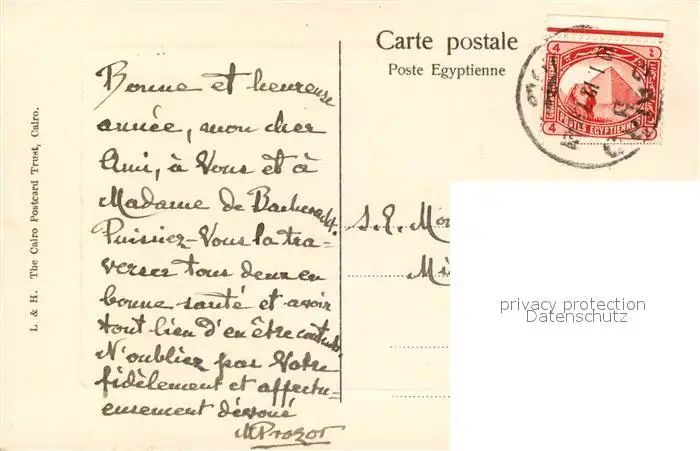 Carte postale
Poste Egyptienne
4
4
4
POSTES EGYPTIENNES
L. & H. The Cairo Postcard Trust, Cairo.
Bonne et heureuse
année, mon cher
Ami, à Vous et à
Madame de
Puissiez-Vous la tra-
verser tous deux en
bonne santé et avoir
tout lieu d'en être contents.
N'oubliez pas Votre
fidèlement et affectu-
eusement dévoué
MProzor
S. E. Mo
Mi
privacy protection
Datenschutz